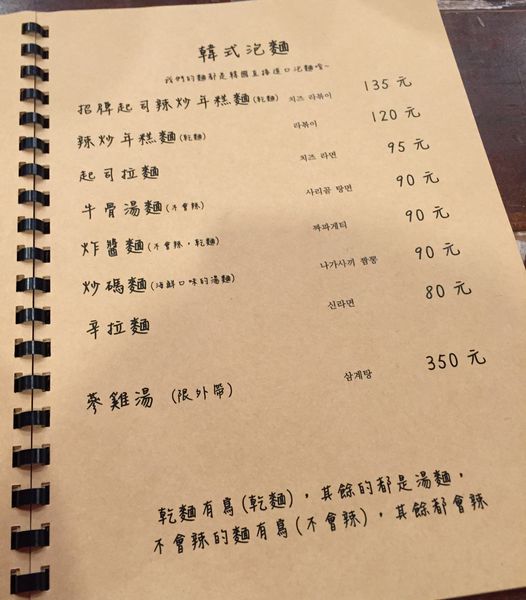 韓式泡麵
我們的麵都是韓國直接進口泡麵唷~
招牌起司辣炒年糕麵(乾麵) 치즈 라볶이 135 元
辣炒年糕麵(乾麵) 라볶이 120 元
起司拉麵 치즈 라면 95 元
牛骨湯麵(不會辣) 사리곰 탕면 90 元
炸醬麵(不會辣,乾麵) 짜파게티 90 元
炒碼麵(海鮮口味的湯麵) 나가사끼 짬뽕 90 元
辛拉麵 신라면 80 元
蔘雞湯 (限外帶) 삼계탕 350 元
乾麵有寫(乾麵),其餘的都是湯麵,
不會辣的麵有寫(不會辣),其餘都會辣